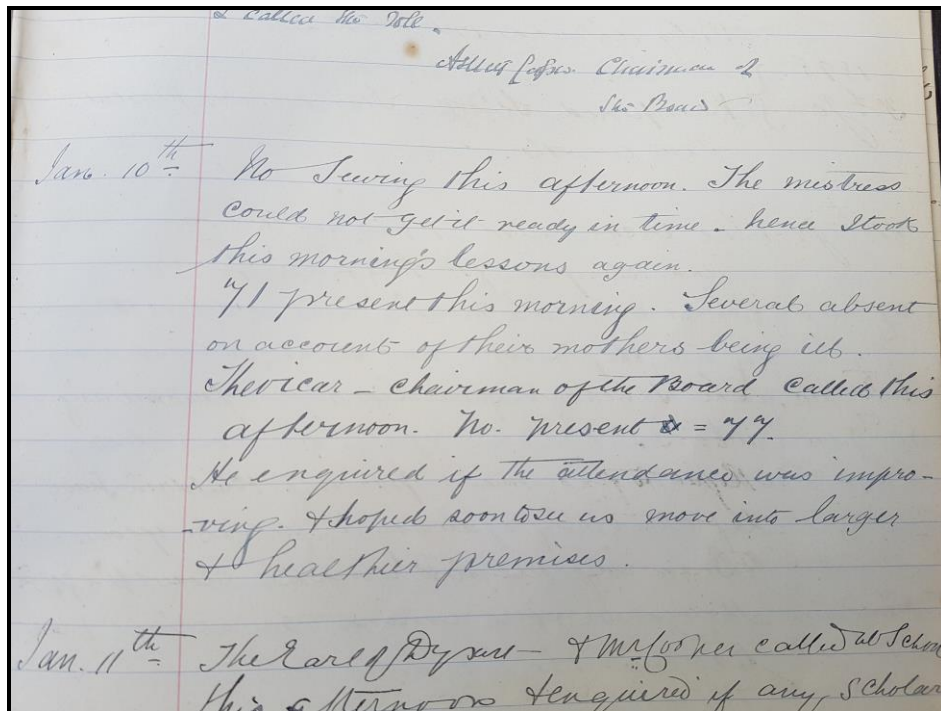 & called the Roll.
Chairman of
the Board
Jan. 10th No Sewing this afternoon. The mistress
could not get it ready in time - hence I took
this morning's lessons again.
71 present this morning. Several absent
on account of their mothers being ill.
The Vicar - Chairman of the Board called this
afternoon. No. present = 77.
He enquired if the attendance was impro-
-ving. & hoped soon to see us move into larger
& healthier premises.
Jan. 11th The Earl of Dysart - & Mr Cooper called at School
this afternoon & enquired if any, scholar